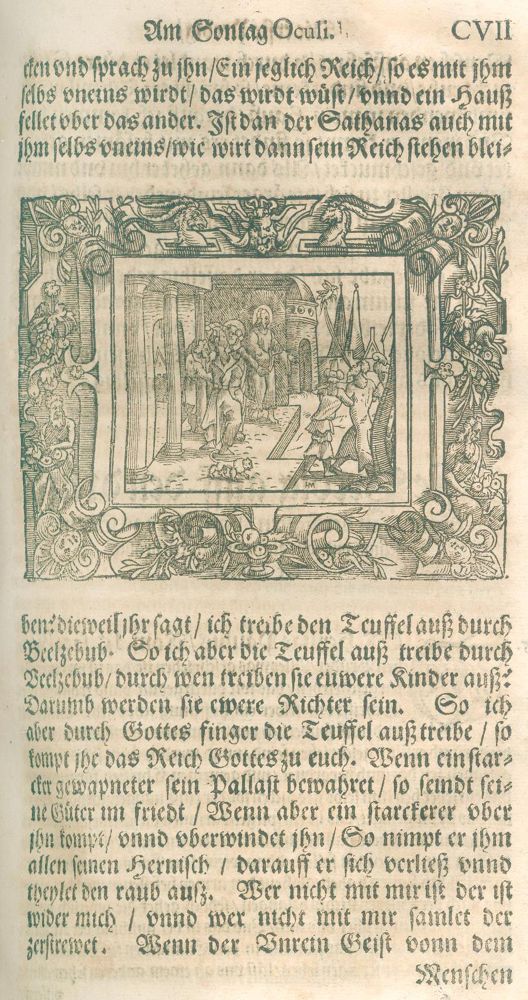 Am Sontag Oculi. CVII
cken vnd sprach zu jhn/Ein jeglich Reich/so es mit jhm
selbs vneins wirdt/das wirdt wüst/vnnd ein Hauß
fellet vber das ander. Ist dan der Sathanas auch mit
jhm selbs vneins/wie wirt dann sein Reich stehen blei-
ben? dieweil jhr sagt/ich treibe den Teuffel auß durch
Beelzebub. So ich aber die Teuffel auß treibe durch
Beelzebub/durch wen treiben sie euwere Kinder auß?
Darumb werden sie ewere Richter sein. So ich
aber durch Gottes finger die Teuffel auß treibe/so
kompt jhe das Reich Gottes zu euch. Wenn ein star-
cker gewapneter sein Pallast bewahret/so seindt sei-
ne Güter im friedt/Wenn aber ein starckerer vber
jhn kompt/vnnd vberwindet jhn/So nimpt er jhm
allen seinen Hernisch/darauff er sich verließ vnnd
theylet den raub auß. Wer nicht mit mir ist der ist
wider mich/vnnd wer nicht mit mir samlet der
zerstrewet. Wenn der Vnrein Geist vonn dem
Menschen